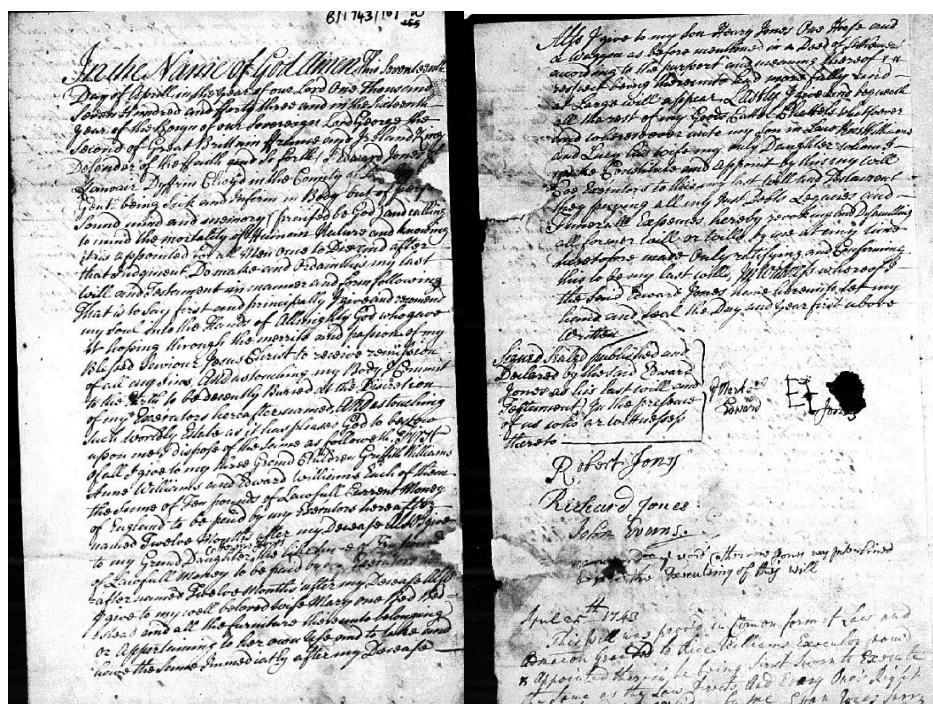 B/1743/101 W
255
In the Name of God Amen This Seventeenth
Day of Aprill in the year of our Lord One Thousand
Seven Hundred and fforty three and in the sixteenth
year of the Reign of our Sovereign Lord George the
Second of Great Brittain ffrance and Ireland King
Defender of the ffaith and so forth I Edward Jones of
Lanvair Dyffrin Clwyd in the County of
being Sick and Infirm in Body but of
Sound mind and memory (praised be God) and calling
to mind the mortality of Humane Nature and knowing
it is appointed for all Men once to Die and after
that Judgment Do make and ordain this my last
will and Testament in manner and form following
That is to say first and principally I give and recomend
my Soul into the Hands of Allmighty God who gave
it hopeing through the merrits and passion of my
Blessed Saviour Jesus Christ to receive remission
of all my sins And as touching my Body I Commit
to the Earth to be Decently Buried at the Discretion
of my Executors hereafter named, And as touching
such worldly Estate as it has pleased God to bestow
upon me I dispose of the same as followeth First
of all I give to my three Grand Children Griffith Williams
Anne Williams and Edward Williams Each of them
the sume of Ten pounds of Lawfull Current Money
of England to be paid by my Executors hereafter
named Twelve Months after my Decease Also I give
to my Grand Daughter Catherine Jones the like sume of
of Lawfull Money to be paid by my Executors
after named Twelve Months after my Decease Also
I give to my well beloved wife Mary one ffed Bed
and all the furniture thereunto belonging
or Appertaining to her own use and to take and
have the same Immediatly after my Decease
Also I give to my son Henry Jones One Horse and
a Waggon as before mentioned in a Deed of Settlement
according to the purport and meaning thereof
respect being thereunto had more fully and
at Large will appear Lastly I give and bequeath
all the rest of my Goods Cattel Chattels whatsoever
and wheresoever unto my Son in Law Rice Williams
and Lucy his wife my only Daughter whome I
make Constitute and appoint by this my will
Executors to this my last will and Testament
they paying all my Just Debts Legacies and
ffunerall Expences hereby revoking and Disanulling
all former will or wills by me at any time
heretofore made Only ratifying and Confirming
this to be my last will In Witness whereof I
the said Edward Jones have hereunto set my
hand and seal the Day and year first above
Written
Signed Sealed published and
Declared by the said Edward
Jones as his last will and
Testament In the presence
of us who are witnesses
thereto
Mark of
Edward E Jones
Robert Jones
Richard Jones
John Evans
word Catherine Jones was interlined
before the Executing of this will
April 25th 1743
This will was proved in Comon form of Law and
Granted to Rice Williams Executor named
& Appointed therein he being first sworn to Execute
the same as the Law directs And Every One's Right